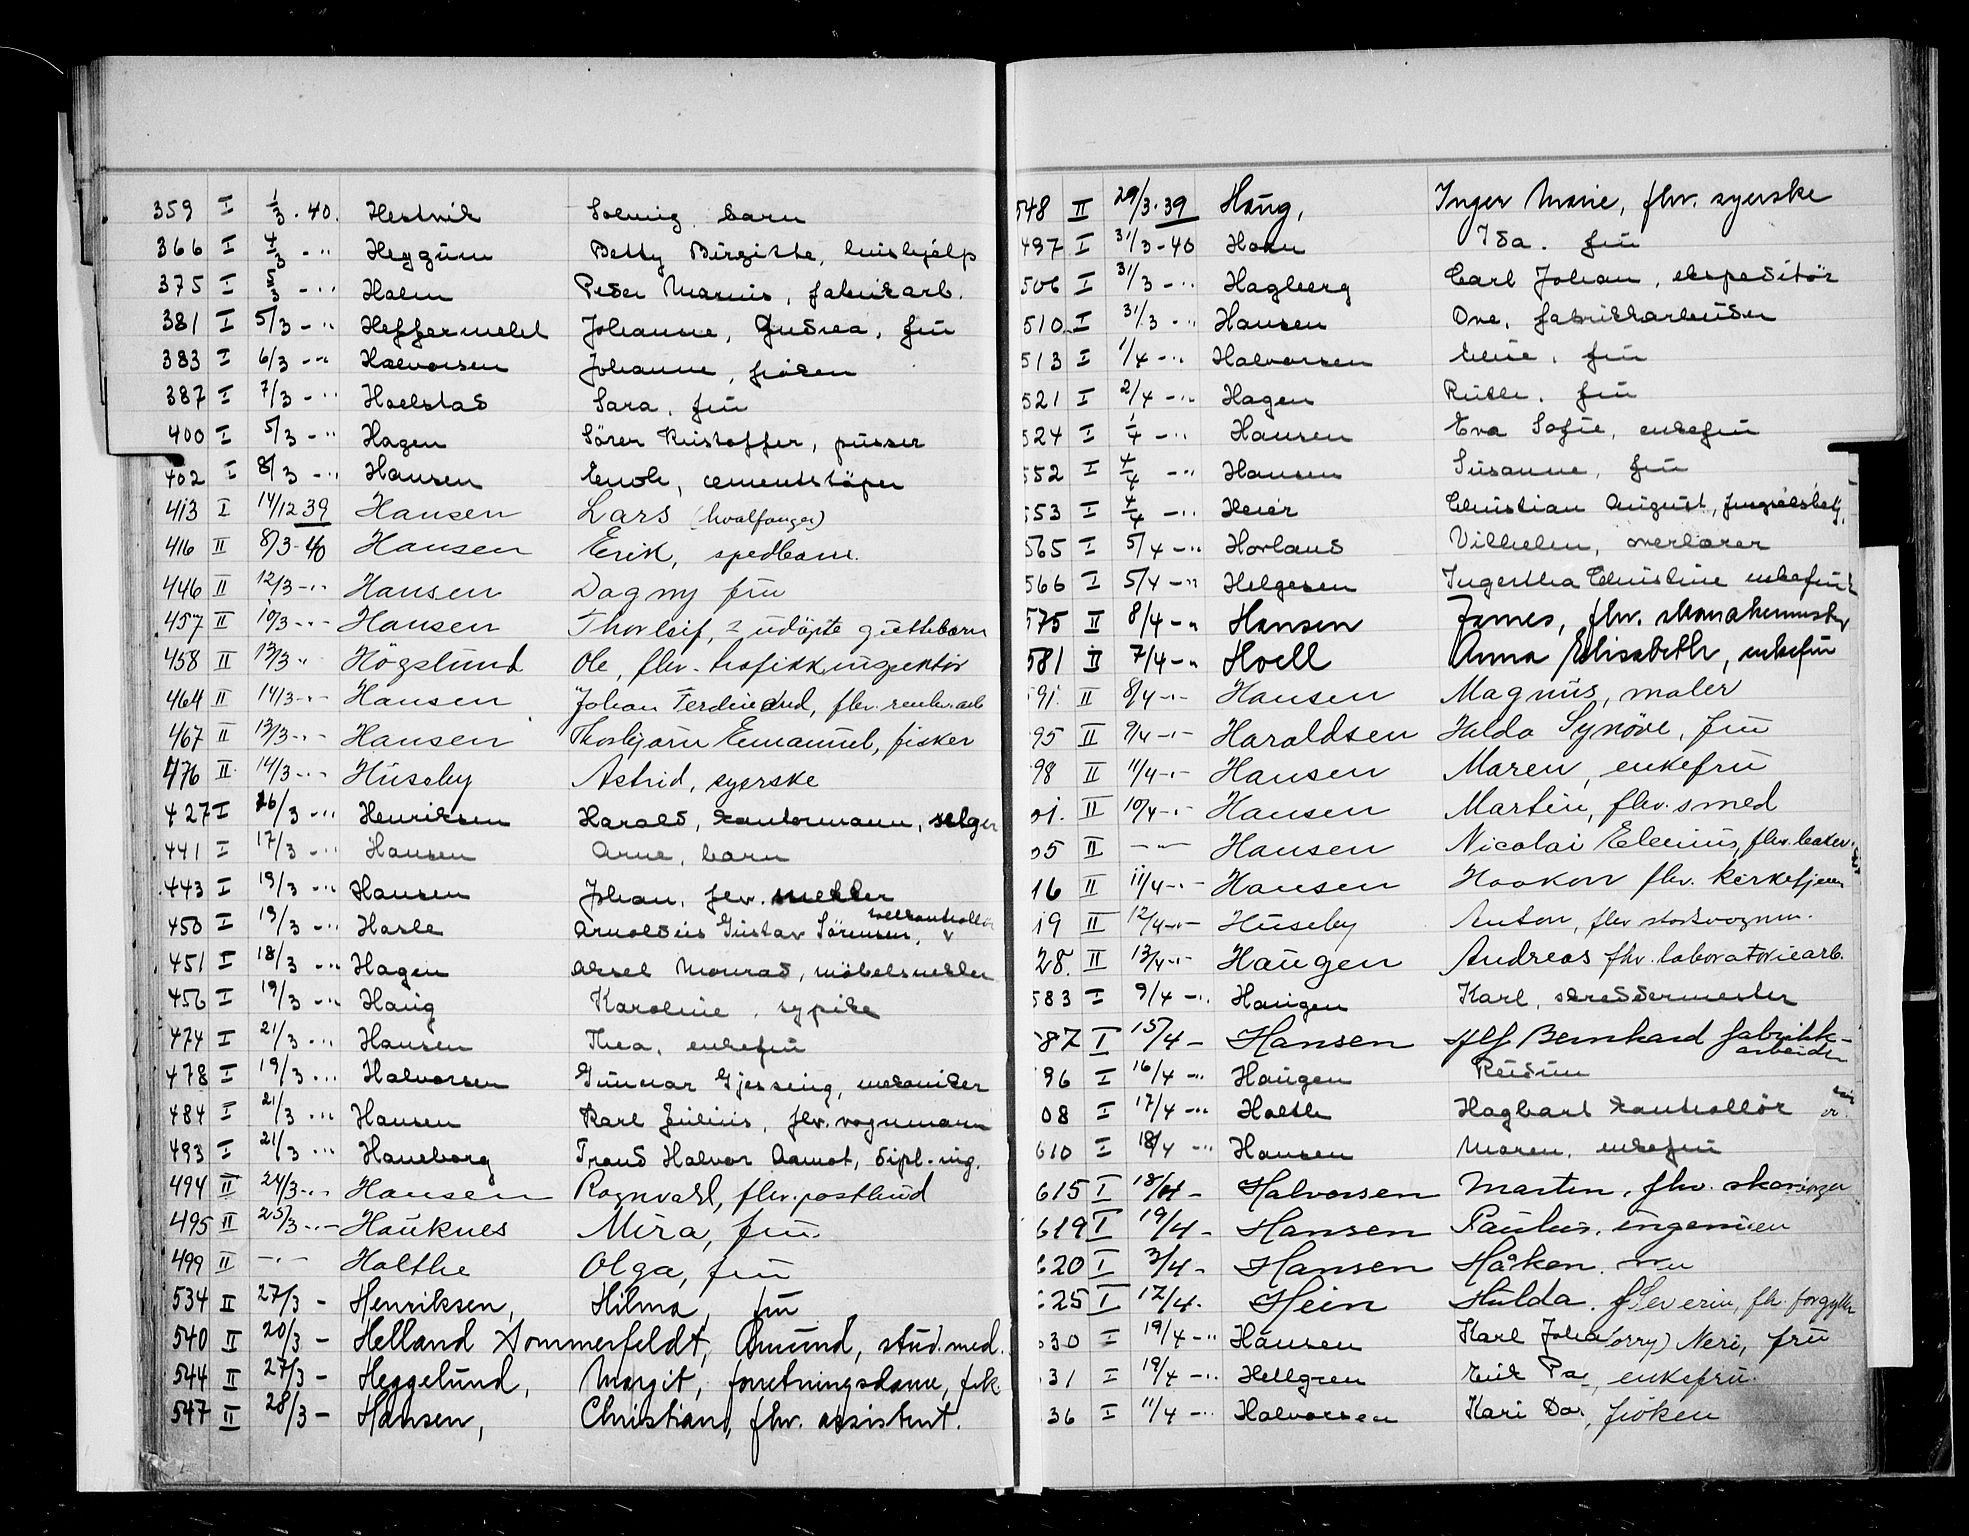 359 I 1/3 · 40. Hestvik Solveig barn
366 I 4/3 - " Heggum Betty Birgitte, hushjelp
375 I 5/3 - " Holm Peder Marius, fabrikarb.
381 I 5/3 - " Heffermehl Johanne, Gudrea, frü
383 I 6/3 - " Halvorsen Johanne, fröken
387 I 7/3 - " Hoelstad Sara, frü
400 I 5/3 - " Hagen Sören Kristoffer, pusser
402 I 8/3 - " Hansen Enok, cementstöper
413 I 14/12 39 Hansen Lars (hvalfanger)
416 II 8/3-40 Hansen Erik, spedbarn.
446 II 12/3 - " Hansen Dagny frü
457 II 10/3 - " Hansen Thorleif, 2 udöpte guttebarn
458 II 13/3 " Högslund Ole, flv. trafikkinspektör
464 II 14/3 - " Hansen Johan Ferdinand, flv. renhv.arb
467 II 13/3 - " Hansen Thorbjörn Emanuel, fisker
476 II 14/3 - " Hüseby Astrid, syerske
427 I 16/3 - " Henriksen Harald, kontormann, selger
441 I 17/3 - " Hansen Arne, barn
443 I 19/3 - " Hansen Johan, flv. snekker
450 I 19/3 - " Hasle Arnoldus Gustav Sörensen, tollkontrollör
451 I 18/3 - " Hagen Aksel Monrad, möbelsnekker
456 I 19/3 - " Haug Karoline, sypike
474 I 21/3 - " Hansen Thea, enkefrü
478 I 19/3 - " Halvorsen Gunnar Gjessing, mekaniker
484 I 21/3 - " Hansen Karl Julius, flv. vognmann
493 I 21/3 - " Haneborg Trond Halvor Aamot, dipl.-ing.
494 II 24/3 - " Hansen Ragnvald, flv. postbud
495 II 25/3 - " Hauknes Mira, frü
499 II - " - Holthe Olga, frü
534 II 27/3 - Henriksen, Hilma, frü
540 II 20/3 - Helland Sommerfeldt, Amund, stud. med.
544 II 27/3 - Heggelund, Margit, forretningsdame, frk
547 II 28/3 - Hansen, Christian, fhv. assistent.
548 II 29/3·39 Haug, Inger Marie, fhv. syerske
497 I 31/3-40 Horn Ida. frü
506 I 31/3 - " Hagberg Carl Johan, ekspeditör
510 I 31/3 - " Hansen Ove, fabrikkarbeider
513 I 1/4 - " Halvorsen Eline, frü
521 I 2/4 - " Hagen Ruth, frü
524 I 1/4 - " Hansen Eva Sofie, enkefrü
552 I 4/4 - " Hansen Susanne, frü
553 I 4/4 - " Heier Christian August,
565 I 5/4 - " Hovland Vilhelm, overlærer
566 I 5/4 - " Helgesen Ingertha Christine enkefrü
575 II 8/4 - " Hansen James, fhv.
581 II 7/4 - " Hoell Anna Elisabeth, enkefrü
91. II 8/4 - " Hansen Magnus, maler
95 II 9/4 - " Haraldsen Hilda Synöve, frü
98 II 11/4 - " Hansen Maren, enkefrü
01. II 10/4 - " Hansen Martin, flv. smed
05 II - " - Hansen Nicolai Elenius, flv. baker
16 II 11/4 - " Hansen Haakon flv. kirketjener
19 II 12/4 - " Hüseby Anton, flv
28. II 13/4 - " Haugen Andreas fhv. laboratoriearb.
583 I 9/4 - " Haugen Karl, skreddermester
87 I 15/4 - Hansen Alf Bernhard fabrikk-
arbeider
96 I 16/4 - " Haugen Reidun
08 I 17/4 - " Holth Hagbart kontrollör
610 I 18/4 - " Hansen Maren, enkefrü
615 I 18/4 - Halvorsen Martin, fhv.
619 I 19/4 - Hansen Paulus, ingeniør
620 I 3/4 - Hansen Håkon.
625 I 17/4. Hein Hulda. f Severin, fh. forgyller
630 I 19/4 - " Hansen Karl Joha orry) Neri, frü
31 I 19/4 - " Hellgren Erik Pa , enkefrü.
36 I 11/4 - " Halvorsen Kari Dor , fröken